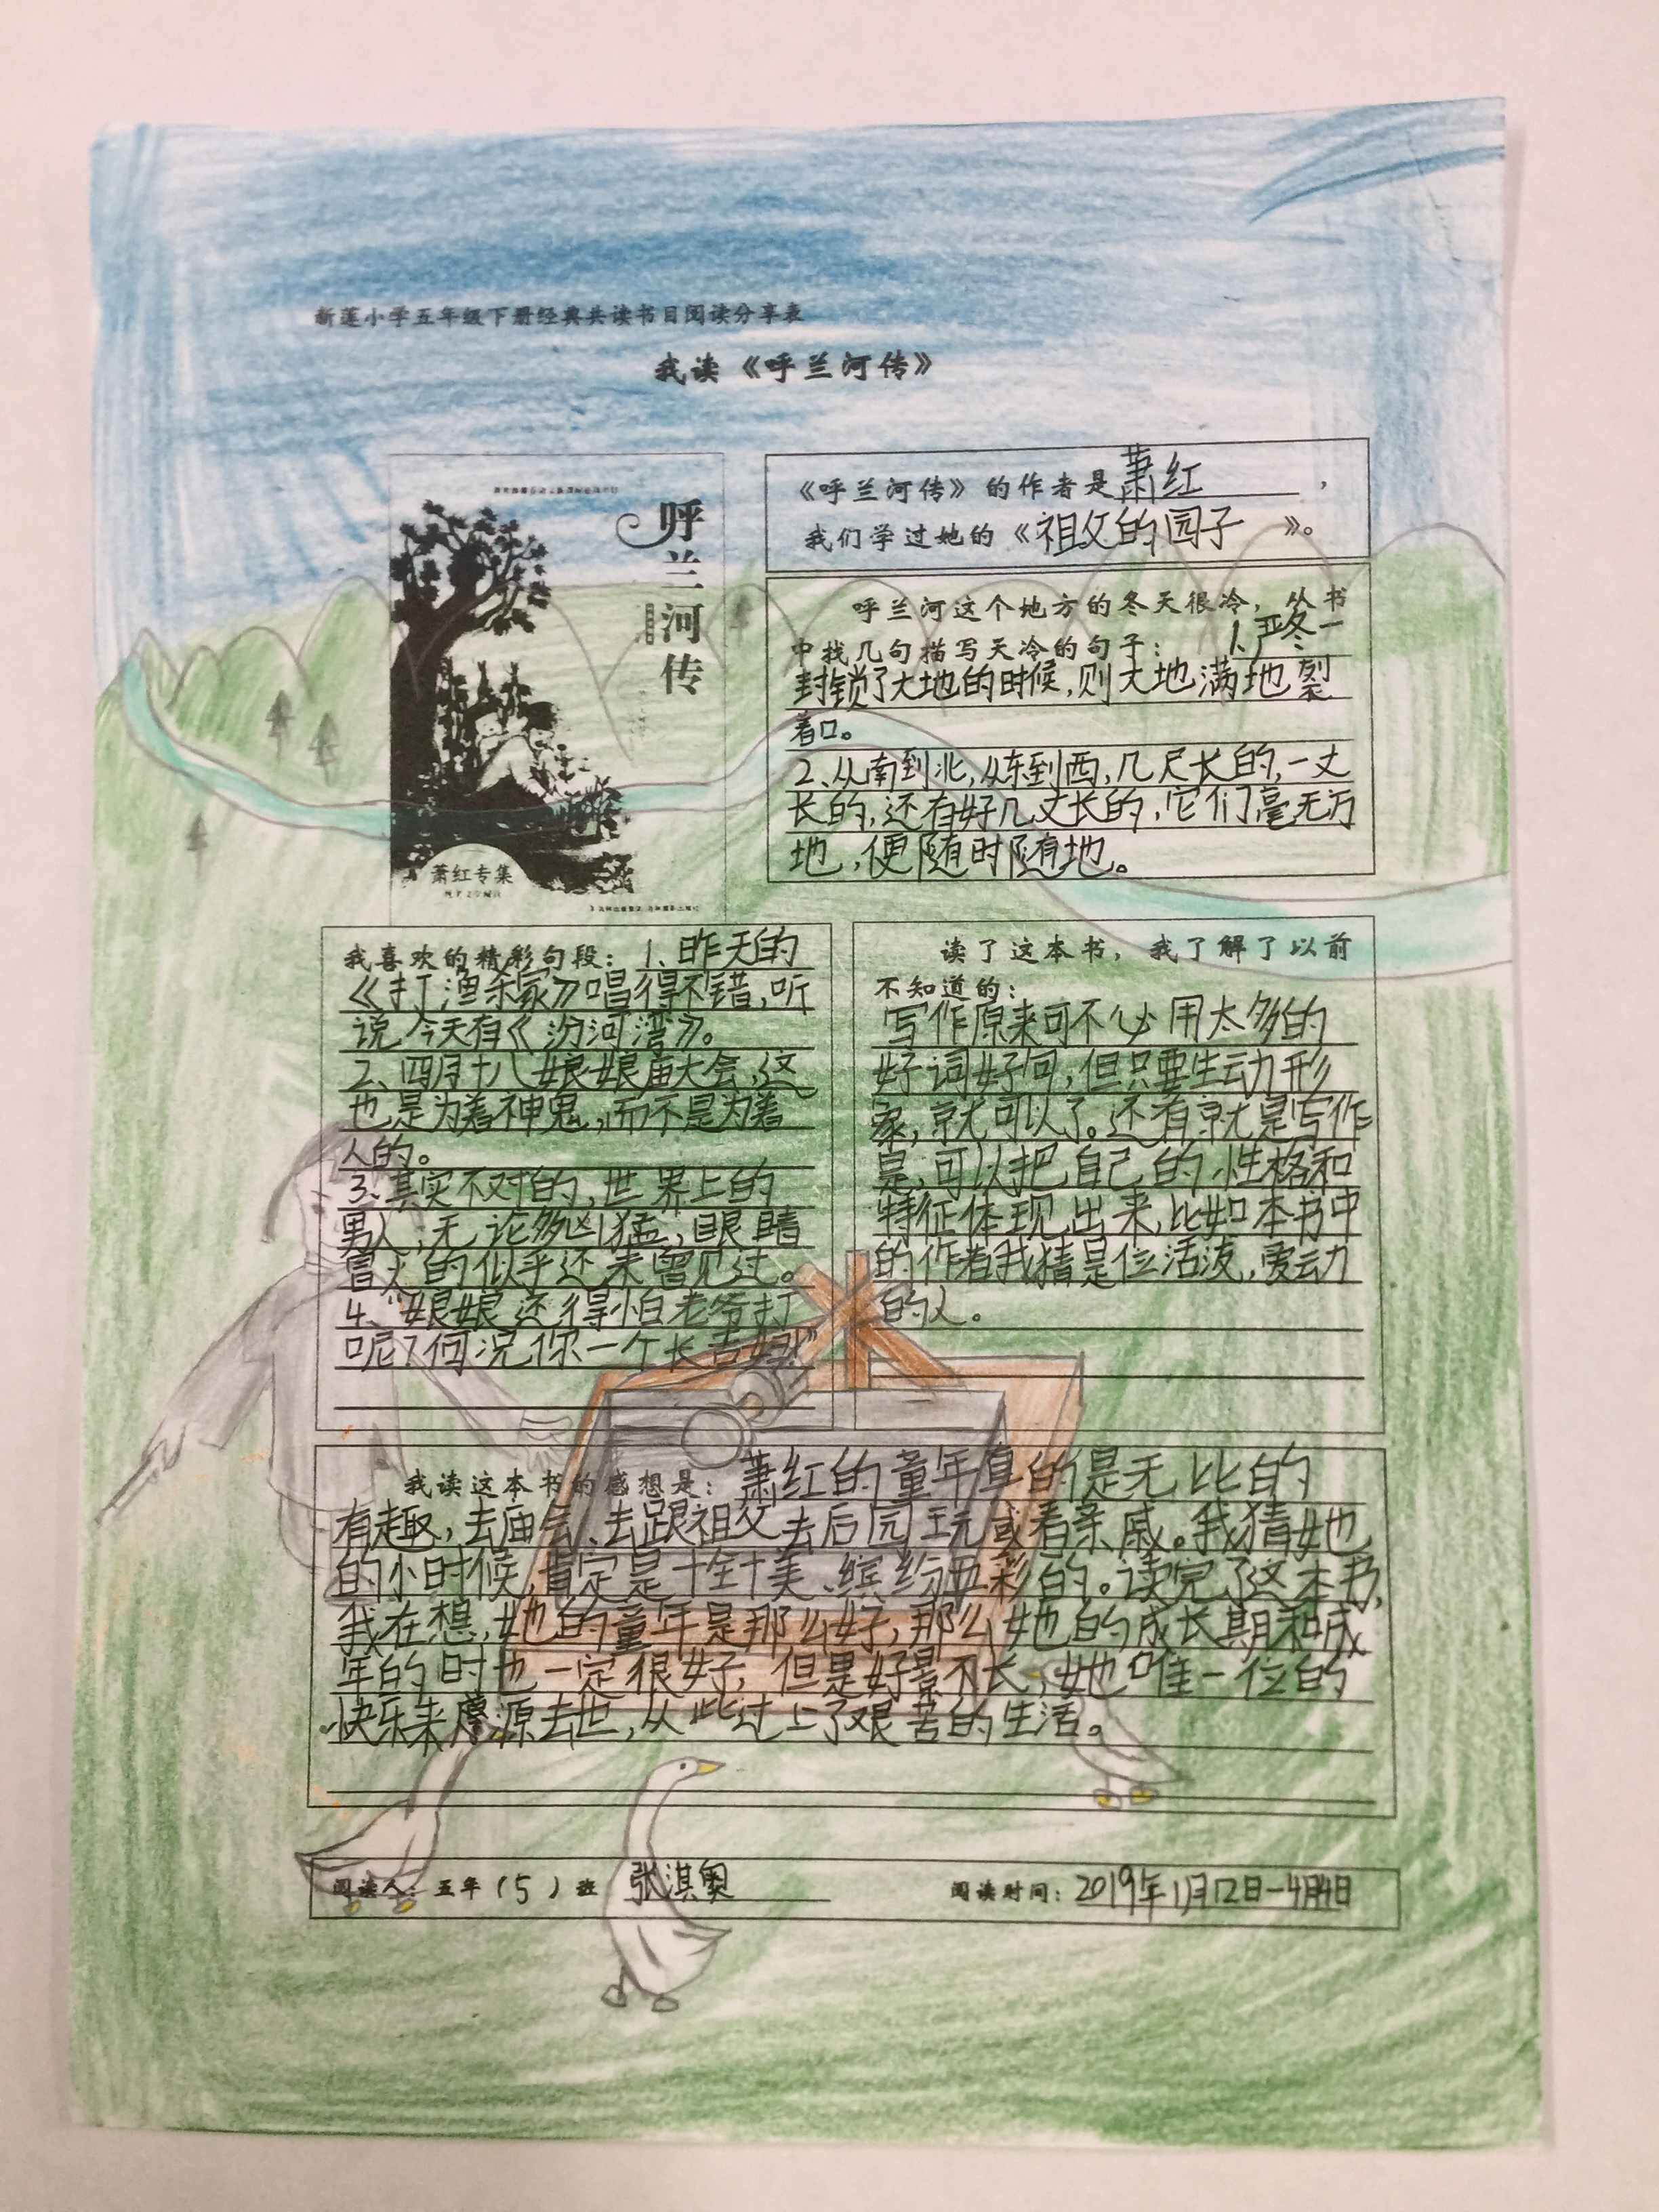 新莲小学五年级下册经典共读书目阅读分享表
我读《呼兰河传》
呼兰河传
萧红专集
《呼兰河传》的作者是萧红,
我们学过她的《祖父的园子》。
呼兰河这个地方的冬天很冷,从书
中找几句描写天冷的句子: 1.严冬一
封锁了大地的时候,则大地满地裂
着口。
2、从南到北,从东到西,几尺长的,一丈
长的,还有好几丈长的,它们毫无方
地,便随时随地。
我喜欢的精彩句段: 1、昨天的
《打渔杀家》唱得不错,听
说今天有《汾河湾》。
2、四月十八娘娘庙大会,这
也是为着神鬼,而不是为着
人的。
3、其实不对的,世界上的
男人,无论多凶猛,眼睛
冒火的似乎还未曾见过。
4、“娘娘还得怕老爷打
呢?何况你一个长舌妇”
读了这本书,我了解了以前
不知道的:
写作原来可不必用太多的
好词好句,但只要生动形
象,就可以了。还有就是写作
是,可以把自己的性格和
特征体现出来,比如本书中
的作者我猜是位活泼,爱动
的人。
我读这本书的感想是: 萧红的童年真的是无比的
有趣,去庙会、去跟祖父去后园玩或看亲戚。我猜她
的小时候,肯定是十全十美、缤纷五彩的。读完了这本书,
我在想,她的童年是那么好,那么她的成长期和成
年的时也一定很好,但是好景不长,她唯一位的
快乐来源去世,从此过上了艰苦的生活。
阅读人:五年(5)班 张淇奥
阅读时间:2019年1月12日-4月4日